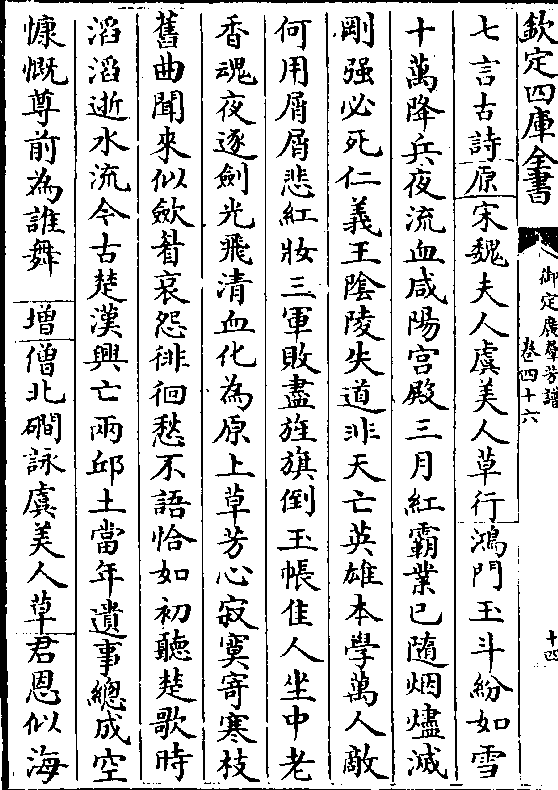 欽定四庫全書
御定廣羣芳譜
卷四十六
十四
七言古詩原宋魏夫人虞美人草行鴻門玉斗紛如雪
十萬降兵夜流血咸陽宫殿三月紅霸業已隨烟燼滅
剛强必死仁義王陰陵失道非天亡英雄本學萬人敵
何用屑屑悲紅妝三軍敗盡旌旗倒玉帳佳人坐中老
香魂夜逐劍光飛清血化為原上草芳心寂寞寄寒枝
舊曲聞來似斂眉哀怨徘徊愁不語恰如初聽楚歌時
滔滔逝水流今古楚漢興亡兩邱土當年遺事總成空
慷慨尊前為誰舞增僧北磵詠虞美人草君恩似海